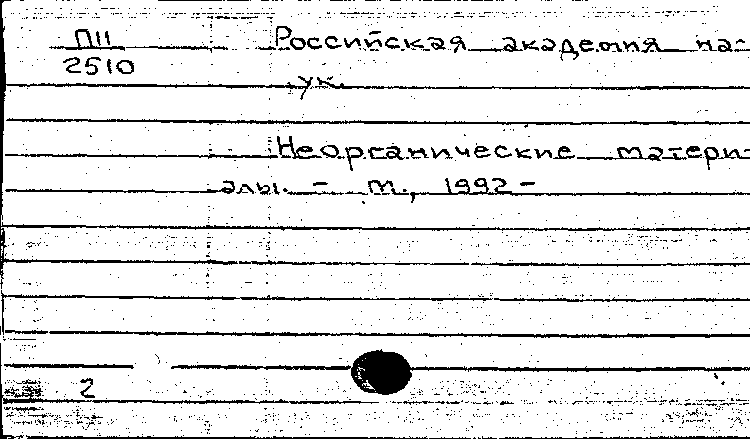 П11
2510
Российская академия на-
ук.
Неорганические матери-
алы. - м., 1992 -
2